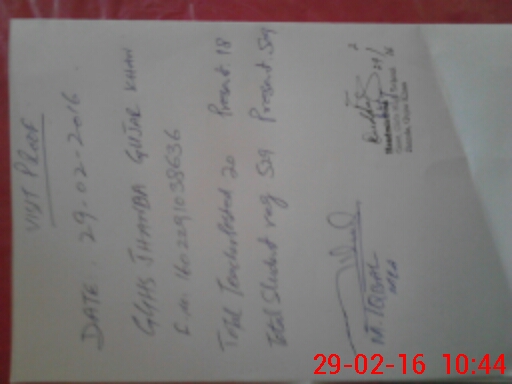 VISIT PROOF
DATE: 29-02-2016.
GGHS JHAMBA GUJAR KHAN
Total Teacher Posted 20 Present: 18
Total Student reg. 59 Present: 59
29/2/16
M. IQBAL
MEA
29-02-16 10:44